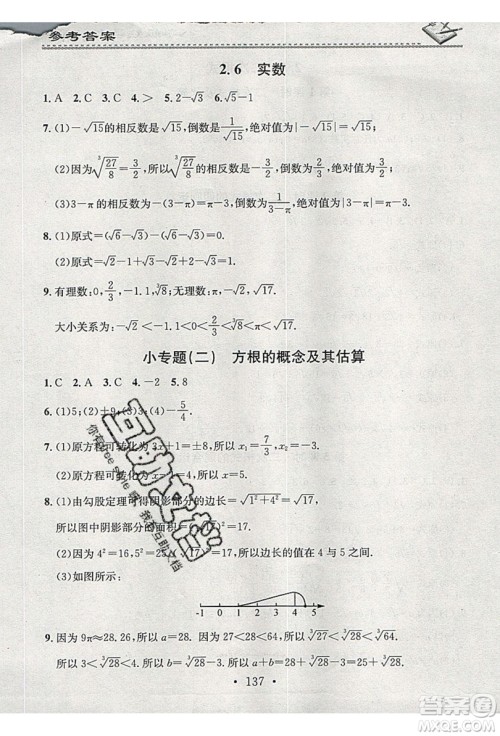 参考答案
2.6 实数
1. A 2. C 3. C 4. > 5. 2-√3 6. √5-1
7. (1)-√15的相反数是√15,倒数是1/√15,绝对值为|-√15|=√15;
(2)因为∛(27/8)=3/2,所以∛(27/8)的相反数是-3/2,倒数是2/3,绝对值为3/2;
(3)3-π的相反数是-(3-π)=π-3,倒数为1/(3-π),绝对值为|3-π|=π-3.
8. (1)原式=(√6-√5)+(√7-√6)=√7-√5.
(2)原式=√2-1+√4-√3-√3+√2=2√2-2√3+1.
9. 有理数:0,2/3,-1,∛9
大小关系为:-√2<-1<0<2/3<∛9
小专题(二) 方根的概念及其估算
1. C 2. A 3. C 4. -2 5. 8
6. (1)5;(2)+9;(3)
7. (1)原方程可转化为3x+1=±8,所以x=7/3,x=-3.
(2)原方程可转化为x-1=-5,所以x=-4.
8. (1)由勾股定理可得阴影部分的边长=√(1²+4²)=√17,
所以图中阴影部分的面积=(√17)²=17.
(2)因为4²=16,5²=25,所以边长的值在4与5之间.
(3)如图所示:
-1 0 1 2 3 4 5
9. 因为9π≈28.26,所以a=28.因为27<28<64,所以∛27<∛28<∛64,
所以3<∛28<4.因为3>√8,所以∛28>√8.
·137·
互助文档